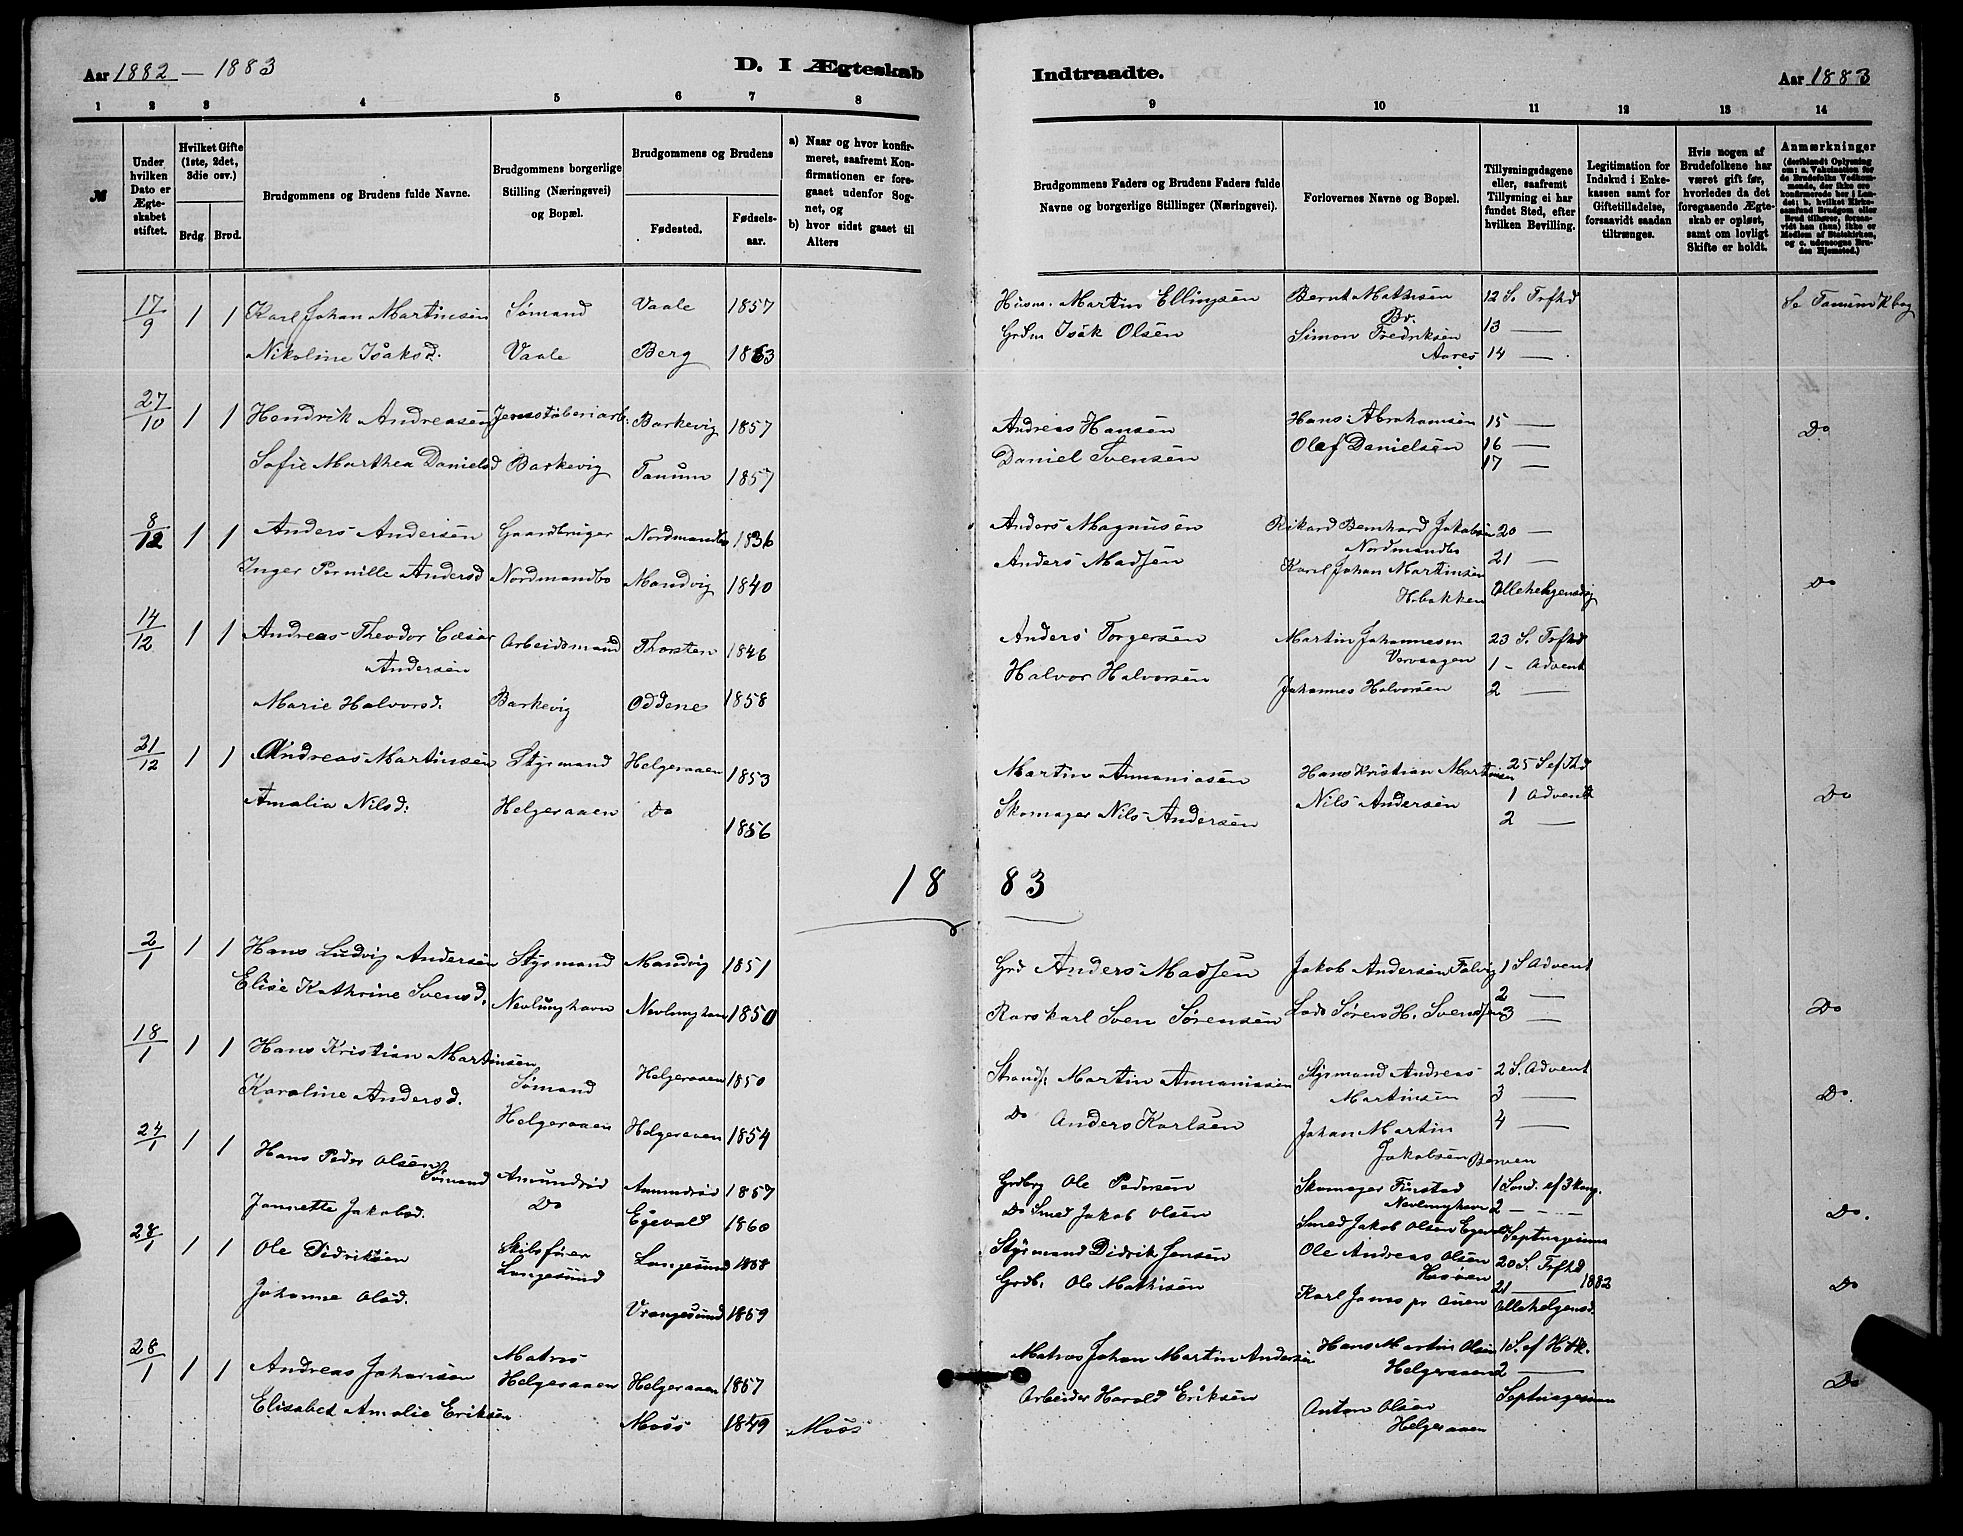 Aar 1882 – 1883
D. I Ægteskab
Indtraadte.
Aar 1883
1 2 3 4 5 6 7 8
9 10 11 12 13 14
№
Under hvilken Dato er Ægteskabet stiftet.
Hvilket Gifte (1ste, 2det, 3die osv.)
Brdg. Brud.
Brudgommens og Brudens fulde Navne.
Brudgommens borgerlige Stilling (Næringsvei) og Bopæl.
Brudgommens og Brudens
Fødested.
Fødselsaar.
a) Naar og hvor konfirmeret, saafremt Konfirmationen er foregaaet udenfor Sognet, og
b) hvor sidst gaaet til Alters
Brudgommens Faders og Brudens Faders fulde Navne og borgerlige Stillinger (Næringsvei).
Forlovernes Navne og Bopæl.
Tillysningsdagene eller, saafremt Tillysning ei har fundet Sted, efter hvilken Bevilling.
Legitimation for Indskud i Enkekassen samt for Giftetilladelse, forsaavidt saadan tiltrænges.
Hvis nogen af Brudefolkene har været gift før, hvorledes da det foregaaende Ægteskab er opløst, samt om lovligt Skifte er holdt.
Anmærkninger
17/9 1 1 Karl Johan Martinsen Sømand Vaale 1857
Nikoline Isaksd. Vaale Berg 1863
Husm. Martin Ellingsen Bernt Mathisen 12 S. Trfhd Se Tanum Kbog
Bø.
Grdm Isak Olsen Simon Fredriksen 13 —
Aares 14 —
27/10 1 1 Hendrik Andreasen Jernstøberiarb. Barkevig 1857
Sofie Marthea Danielsd Barkevig Tanum 1857
Andreas Hansen Hans Abrahamsen 15 — Do
Daniel Svensen Olaf Danielsen 16 —
17 —
8/12 1 1 Anders Andersen Gaardbruger Nordmandbo 1836
Inger Pernille Andersd Nordmandbo Mandvig 1840
Anders Magnusen Rikard Bernhard Jakobsen 20 —
Nordmandbo
Anders Madsen Karl Johan Martinsen 21 — Do
Hobakken Allehelgensdag
14/12 1 1 Andreas Theodor Cæsar Arbeidsmand Thorsten 1846
Andersen
Marie Halvorsd. Barkevig Oddene 1858
Anders Torgersen Martin Johannesen 23 S. Trfhd
Vervaagen 1 – Advent
Halvor Halvorsen Johannes Halvorsen 2 —
21/12 1 1 Andreas Martinsen Styrmand Helgeraaen 1853
Amalia Nilsd. Helgeraaen Do 1856
Martin Annaniasen Hans Kristian Martinsen 25 S ef Thd
Skomager Nils Andersen Nils Andersen 1 Advent Do
2 —
1883
2/1 1 1 Hans Ludvig Andersen Styrmand Mandvig 1851
Elise Kathrine Svensd. Nevlunghavn Nevlunghavn 1850
Grd Anders Madsen Jakob Andersen Falvig 1 S Advent
2 — Do
Rorskarl Sven Sørensen Lods Søren H. Svendsen 3 —
18/1 1 1 Hans Kristian Martinsen Sømand Helgeraaen 1850
Karoline Andersd. Helgeraaen Helgeraaen 1854
Strands. Martin Annaniasen Styrmand Andreas 2 S. Advent
Martinsen 3 — Do.
Do Anders Karlsen Johan Martin 4 —
Jakobsen Berven
24/1 1 1 Hans Peder Olsen Sømand Amundrød Amundrød 1857
Jannette Jakobsd. Do Egevold 1860
Grdbrg Ole Pedersen Skomager Finstad 1 Sønd. ef 3 kong.
Nevlunghavn 2 — Do.
Do Smed Jakob Olsen Smed Jakob Olsen Egevold Septuagesima
28/1 1 1 Ole Didriksen Skibsfører Langesund 1858
Langesund
Johanne Olsd. Vrangesund 1859
Styrmand Didrik Jensen Ole Andreas Olsen 20 S. Trfhd
Hasøen 1882
Grdb. Ole Mathisen 21 — Do
Karl Allehelgensd.
28/1 1 1 Andreas Johansen Matros Helgeraaen Helgeraaen 1857
Elisabet Amalie Eriksen Moss 1849 Moss
Matros Johan Martin Andersen Hans Martin Olsen 1 S. ef H3k.
Helgeraaen 2 —
Arbeider Harald Eriksen Septuagesima Do
Anton Olsen
Helgeraaen